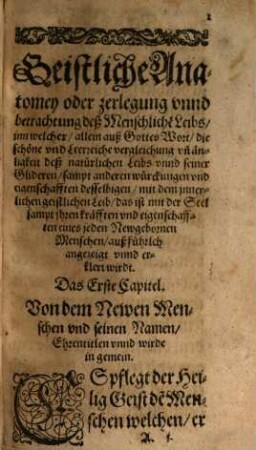 1
Geistliche Ana-
tomey oder zerlegung vnnd
betrachtung deß Menschlichẽ Leibs/
inn welcher/ allein auß Gottes Wort/ die
schöne vnd Leerreiche vergleichung vñ än-
ligkeit deß natürlichen Leibs vnnd seiner
Glideren/ sampt anderen würckungen vnd
eigenschafften desselbigen/ mit dem jnner-
lichen geistlichen Leib/ das ist mit der Seel
sampt jhren kräfften vnd eigenschaff-
ten eines jeden Newgebornen
Menschen/ auß führlich
angezeigt vnnd er-
klert wirdt.
Das Erste Capitel.
Von dem Newen Men-
schen vnd seinen Namen/
Ehrentitlen vnnd wirde
in gemein.
ES pflegt der Hei-
lig Geist dẽ Men-
schen welchen/ er
A. j.